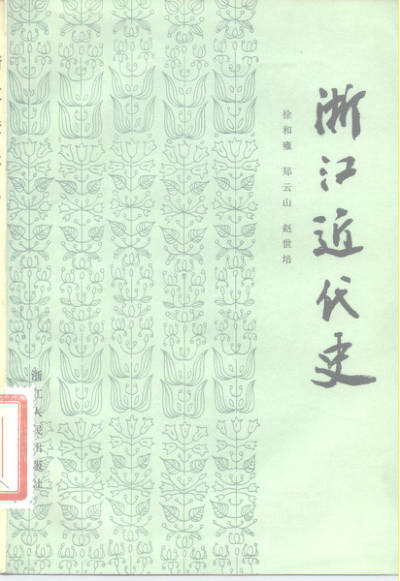 浙江近代史
徐和雍 郑云山 赵世培
浙江人民出版社